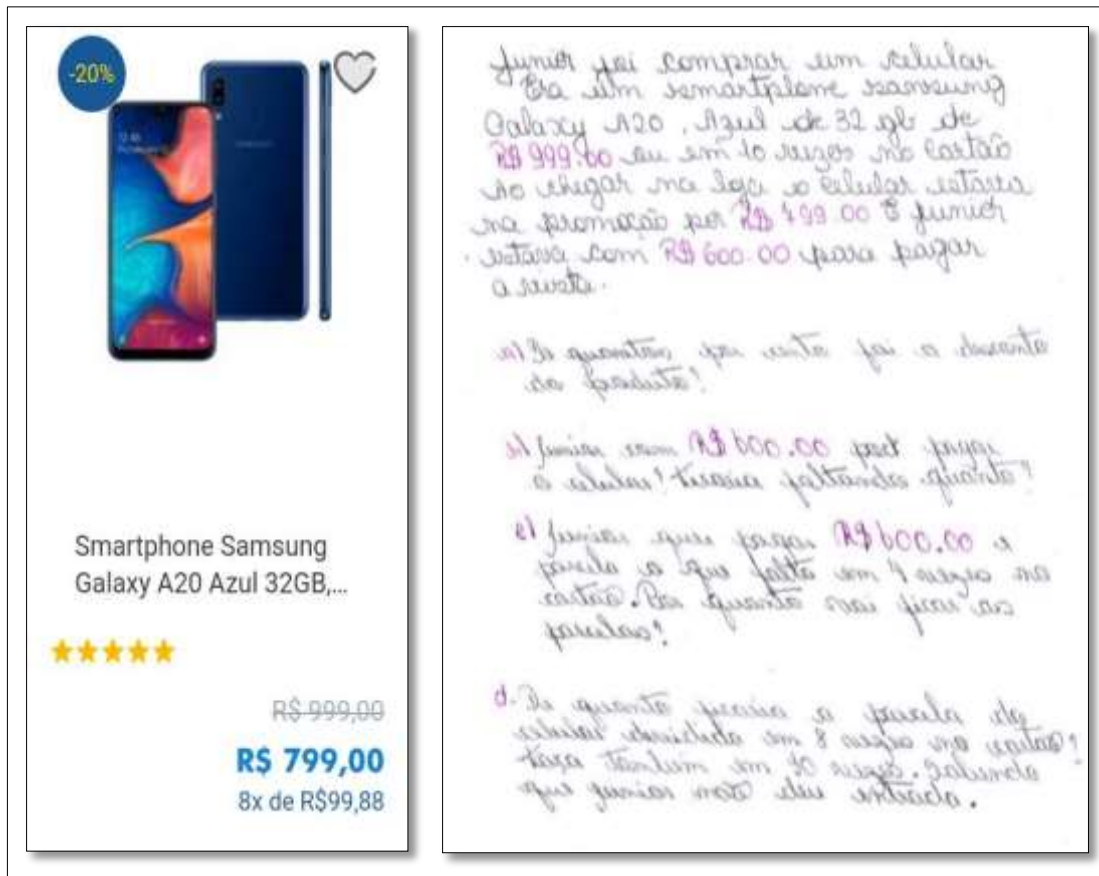 -20%
Smartphone Samsung
Galaxy A20 Azul 32GB,...
R$ 999,00
R$ 799,00
8x de R$99,88
Junior foi comprar um celular
Era um smartphone samsung
Galaxy A20, Azul de 32 gb de
R$ 999.00 ou em 10 vezes no cartão
Ao chegar na loja o celular estava
na promoção por R$ 799.00 E junior
estava com R$ 600.00 para pagar
a vista.
a) De quantos por cento foi o desconto
do produto?
b) Junior com R$ 600.00 pagar
o celular? ficaria faltando quanto?
c) Junior quer pagar R$ 600.00 e
parcela o que falta em 4 vezes no
cartão. De quanto vai ficar as
parcelas?
d. De quanto ficaria a parcela do
celular dividido em 8 vezes no cartão?
faça também em 10 vezes. Sabendo
que junior não deu entrada.